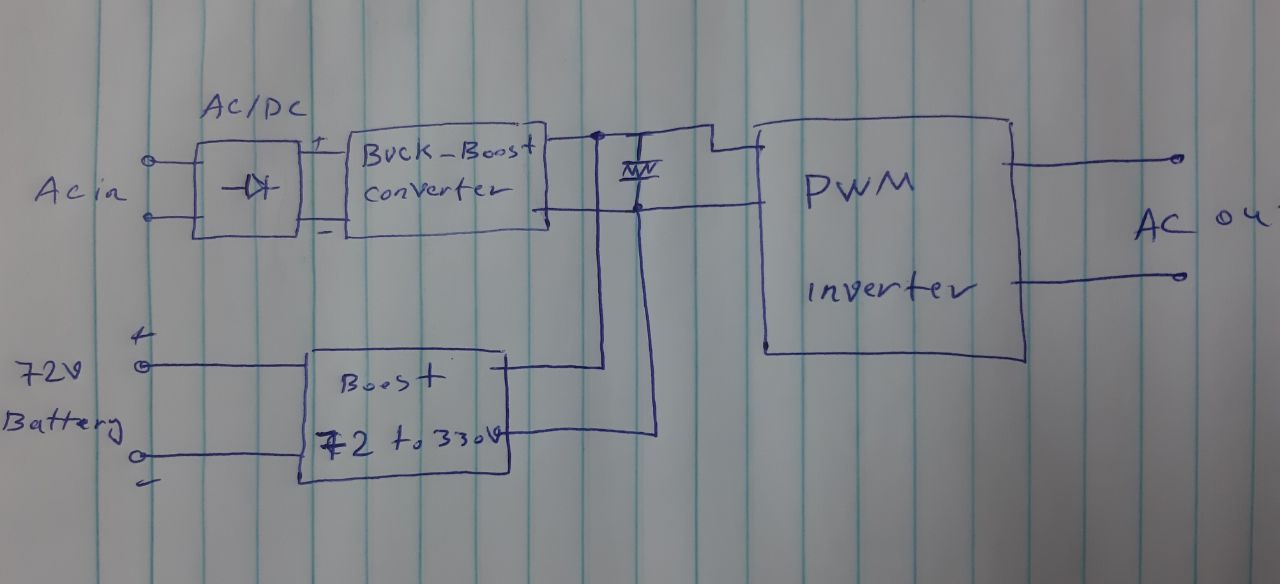 AC/DC
Ac in
+
-
Buck-Boost
converter
PWM
inverter
AC ou
+
72V
Battery
-
Boost
72 to 330V